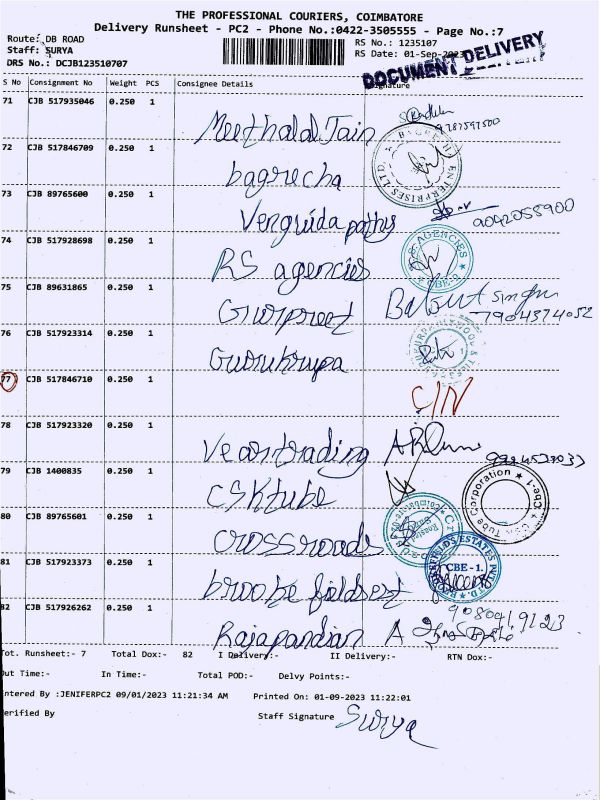 THE PROFESSIONAL COURIERS, COIMBATORE
Delivery Runsheet - PC2 - Phone No.:0422-3505555 - Page No.:7
Route: DB ROAD
Staff: SURYA
DRS No.: DCJB123510707
RS No.: 1235107
RS Date: 01-Sep-2023
DOCUMENT DELIVERY
S No Consignment No Weight PCS Consignee Details Signature
71 CJB 517935046 0.250 1 Meethalal Jain
9787597500
72 CJB 517846709 0.250 1 bagrecha
ENTERPRISES LTD
73 CJB 89765600 0.250 1
9042055900
74 CJB 517928698 0.250 1 RS agencies
AGENCIES
75 CJB 89631865 0.250 1 Gurpreet
7904374052
76 CJB 517923314 0.250 1 Gurukrupa
77 CJB 517846710 0.250 1 C/N
78 CJB 517923320 0.250 1 trading
79 CJB 1400835 CSK tube
Tube Corporation * Cbe-1 *
80 CJB 89765601 0.250 1 crossroads
81 CJB 517923373 0.250 1 brooke fields est
FIELDS ESTATES PVT. LTD.
CBE - 1.
82 CJB 517926262 0.250 1 Rajapandian
Tot. Runsheet:- 7 Total Dox:- 82 I Delivery:- II Delivery:- RTN Dox:-
Out Time:- In Time:- Total POD:- Delvy Points:-
Entered By :JENIFERPC2 09/01/2023 11:21:34 AM Printed On: 01-09-2023 11:22:01
Verified By Staff Signature Surya